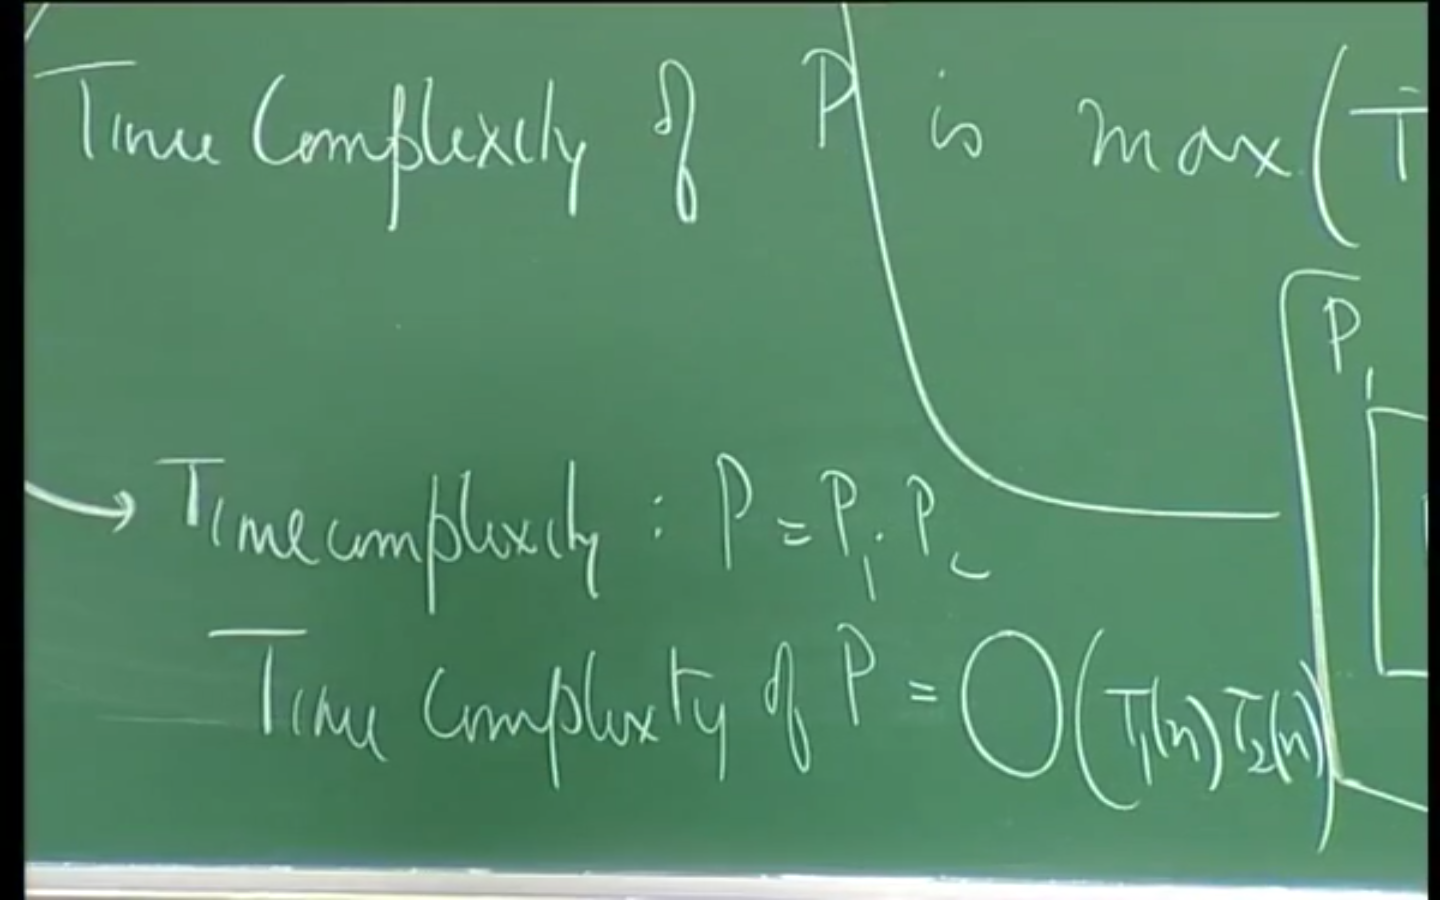 Time Complexity of P is max (T
P1
Time complexity : P = P1 . P2
Time Complexity of P = O(T1(n) T2(n))